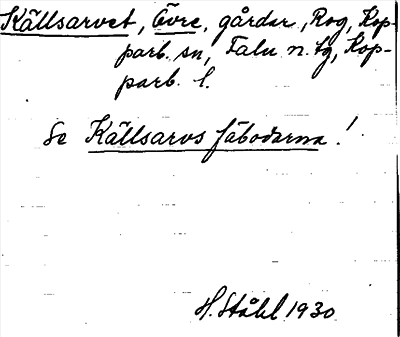 Källsarvet, Övre, gårdar, Rog, Kop-
parb. sn, Falu n. tg, Kop-
parb. l.
Se Källsarvs fäbodarna!
H. Ståhl 1930